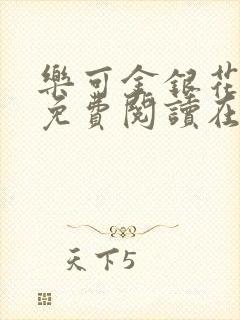 樂可金銀花
免費閱讀在
天下5